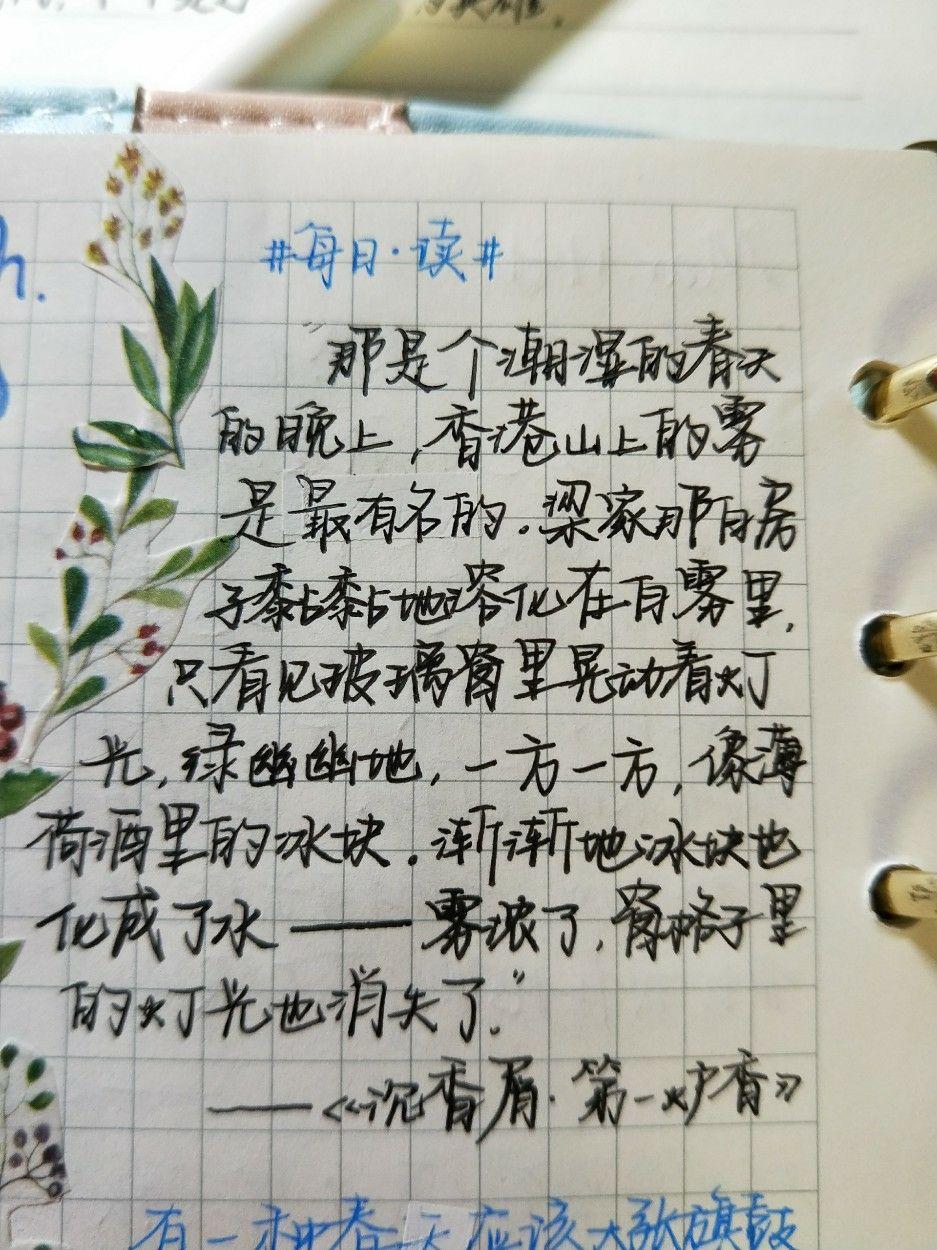 h.
#每日·读#
"那是个潮湿的春天
的晚上,香港山上的雾
是最有名的.梁家那白房
子黏黏地溶化在白雾里,
只看见玻璃窗里晃动着灯
光,绿幽幽地,一方一方,像薄
荷酒里的冰块.渐渐地冰块也
化成了水——雾浓了,窗格子里
的灯光也消失了."
——《沉香屑·第一炉香》
有一种春天应该大张旗鼓